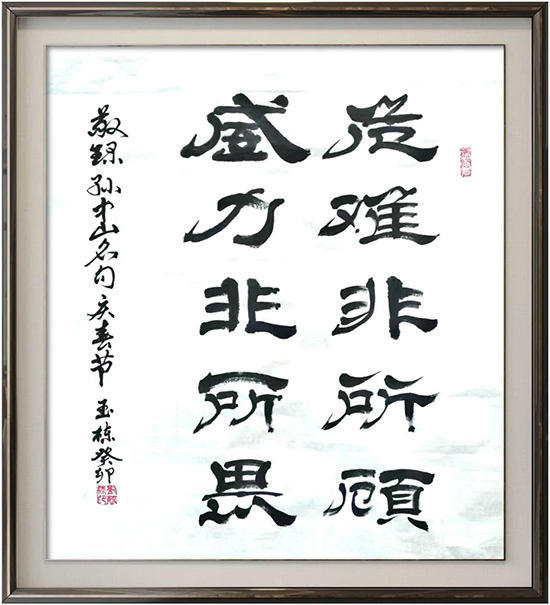 危难非所顾
威力非所畏
敬録孙中山名句庆春节 玉栋癸卯